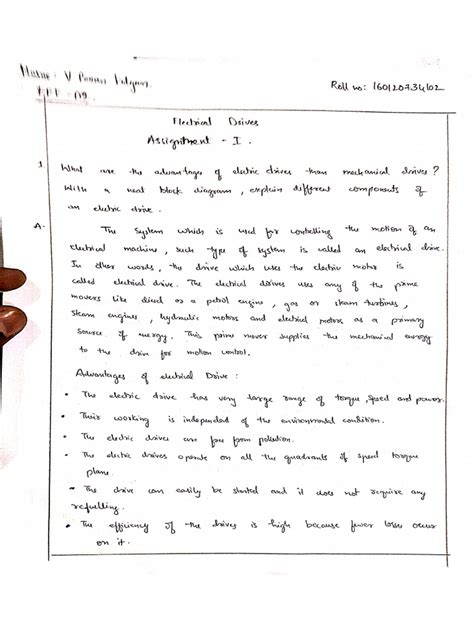 Name - V Pavan
Roll no: 160120734402
EEE - A9
Electrical Drives
Assignment - I.
1. What are the advantages of electric drives than mechanical drives?
With a neat block diagram, explain different components of
an electric drive.
A- The system which is used for controlling the motion of an
electrical machine, such type of system is called an electrical drive.
In other words, the drive which uses the electric motor is
called electrical drive. The electrical drives uses any of the prime
movers like diesel or a petrol engine, gas or steam turbines,
steam engines, hydraulic motors and electrical motors as a primary
source of energy. This prime mover supplies the mechanical energy
to the drive for motion control.
Advantages of electrical Drive :
• The electric drive has very large range of torque, speed and power.
• Their working is independent of the environmental condition.
• The electric drives are free from pollution.
• The electric drives operate on all the quadrants of speed torque
plane.
• The drive can easily be started and it does not require any
refuelling.
• The efficiency of the drives is high because fewer losses occur
on it.